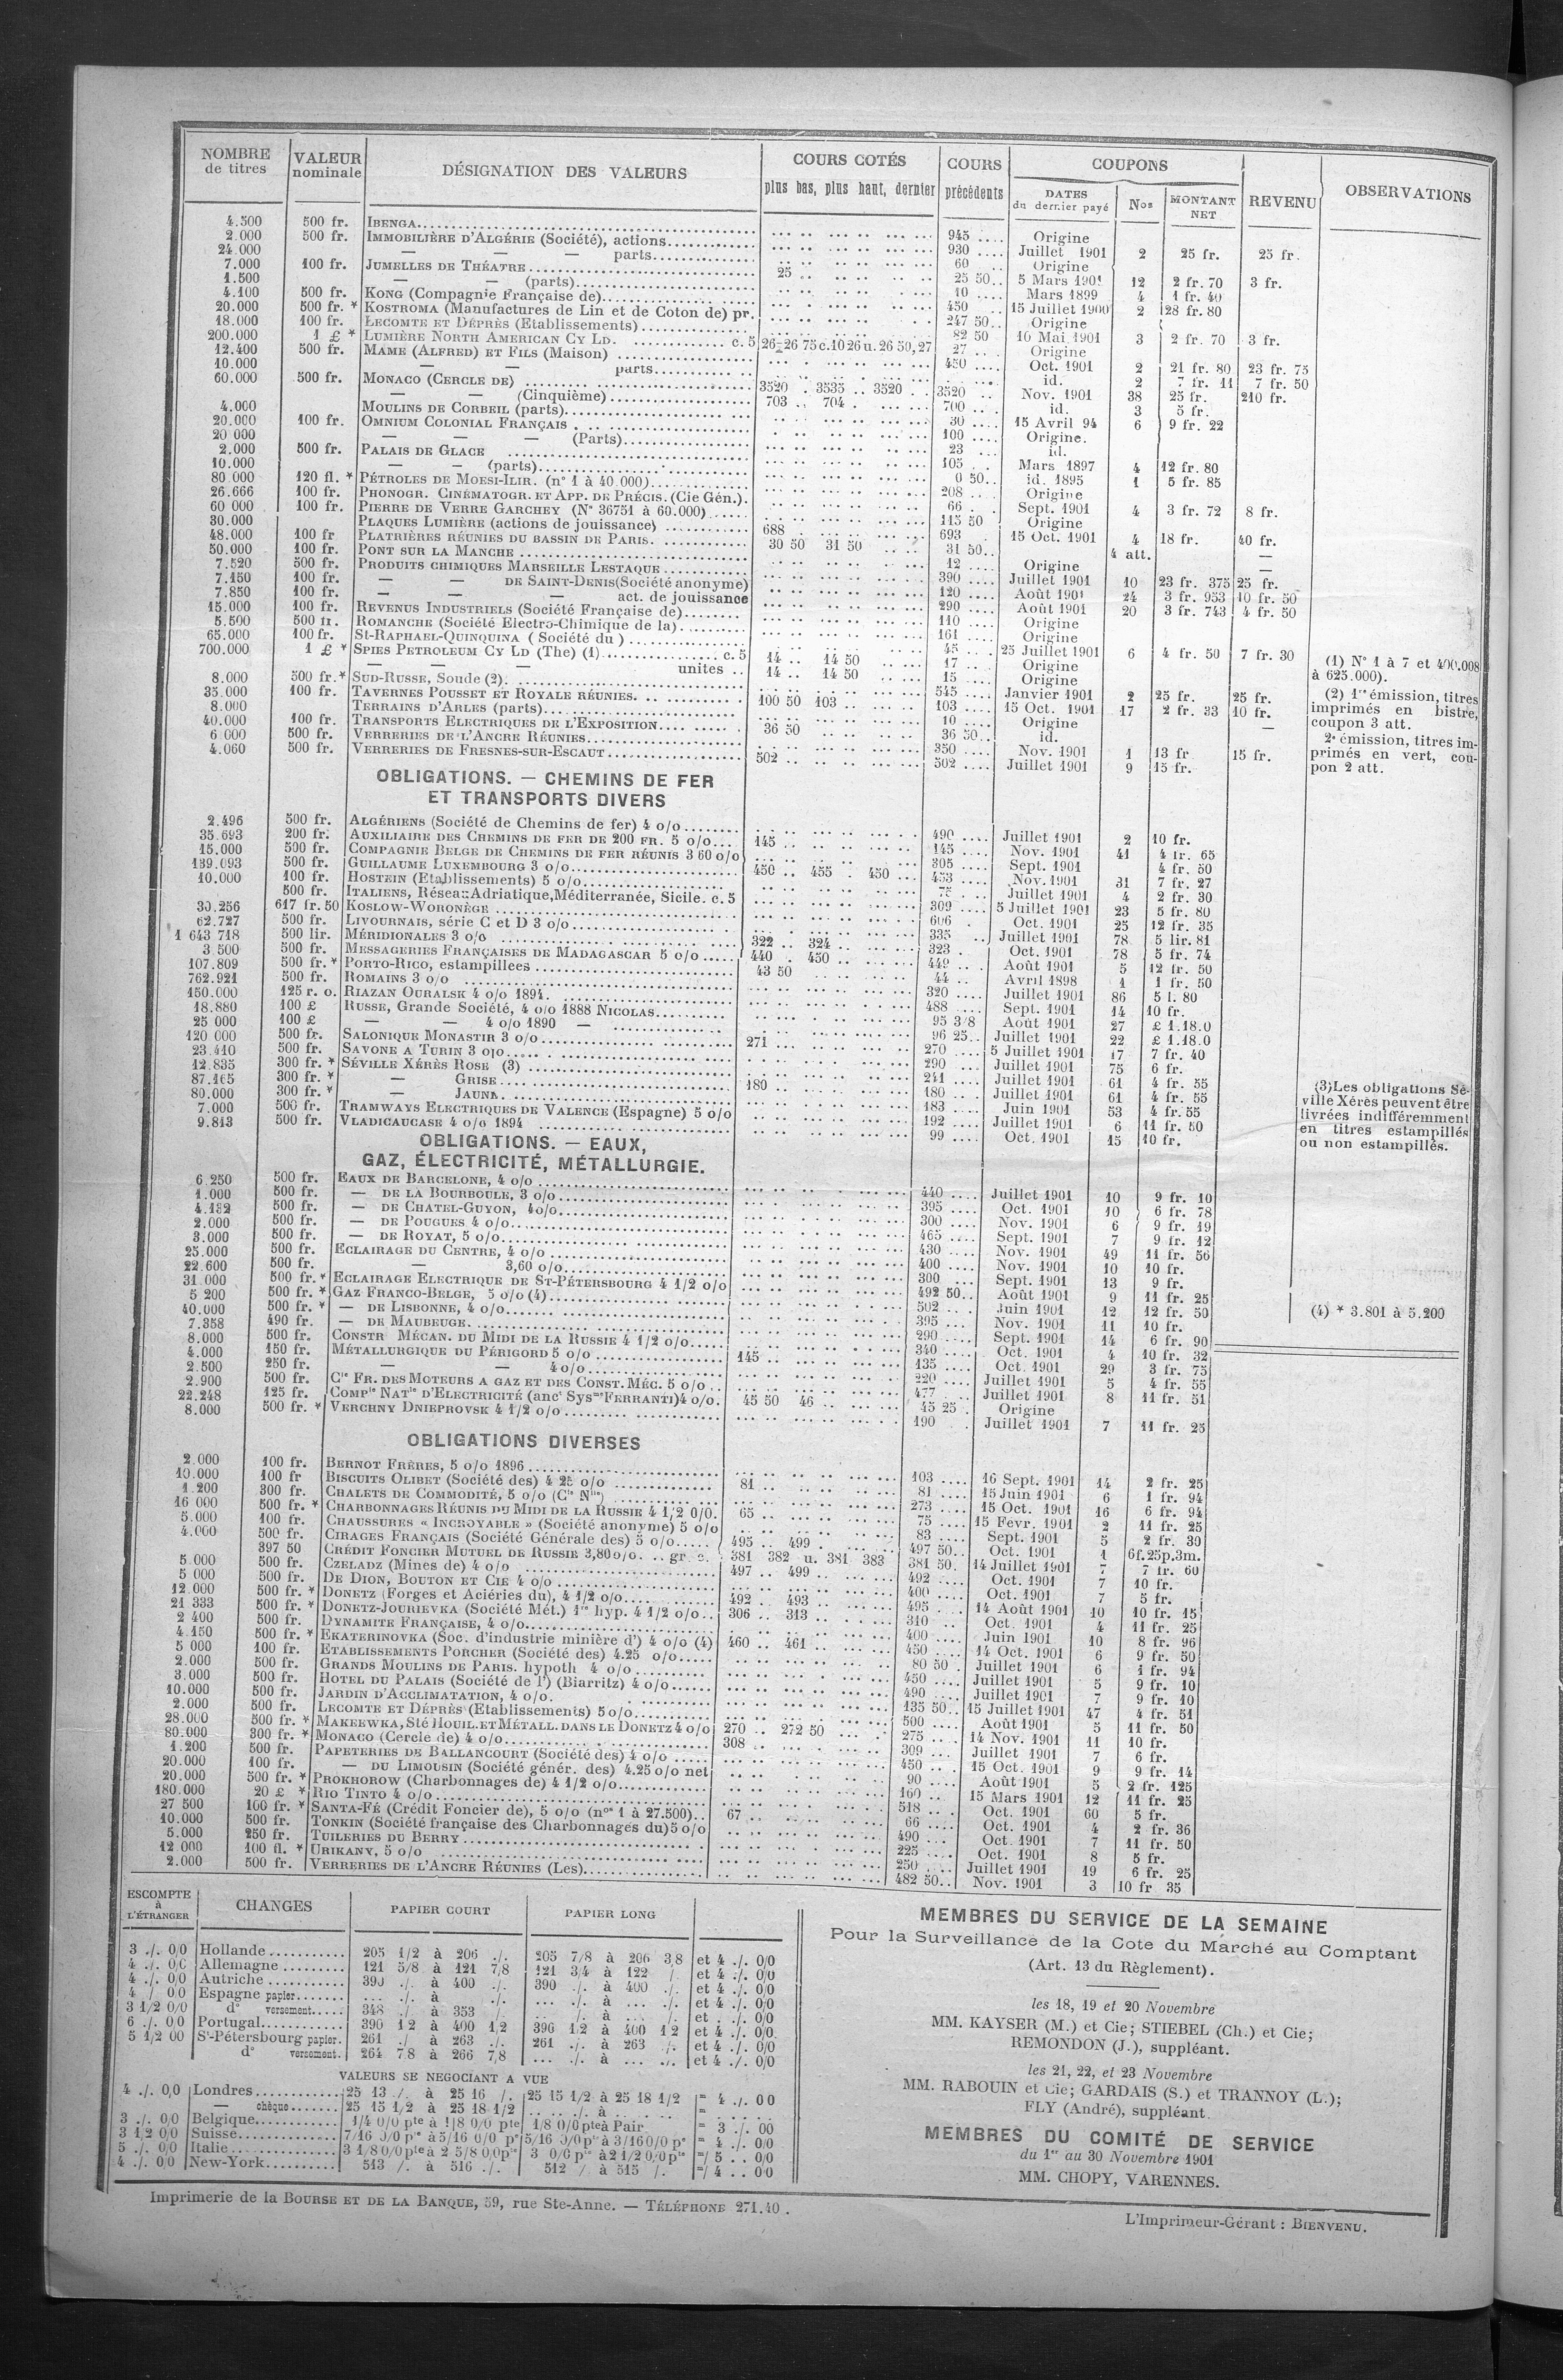 NOMBRE de titres | VALEUR nominale | DÉSIGNATION DES VALEURS | COURS COTÉS plus bas, plus haut, dernier | COURS précédents | COUPONS DATES du dernier payé | Nos | MONTANT NET | REVENU | OBSERVATIONS
4.500 500 fr. IBENGA 945 Origine
2.000 500 fr. IMMOBILIÈRE D'ALGÉRIE (Société), actions 930 Juillet 1901 2 25 fr. 25 fr.
24.000 — — — parts 60 Origine
7.000 100 fr. JUMELLES DE THÉATRE 25 25 50 5 Mars 1901 12 2 fr. 70 3 fr.
1.500 — — (parts) 10 Mars 1899 4 1 fr. 40
4.100 500 fr. KONG (Compagnie Française de)
20.000 500 fr. * KOSTROMA (Manufactures de Lin et de Coton de) pr.
18.000 100 fr. LECOMTE ET DÉPRÈS (Etablissements)
200.000 1 £ * LUMIÈRE NORTH AMERICAN CY LD. c. 5
12.400 500 fr. MAME (ALFRED) ET FILS (Maison)
10.000 — — parts
60.000 500 fr. MONACO (CERCLE DE) 3520 3535 3520 3520
— — (Cinquième) 703 704 700
4.000 MOULINS DE CORBEIL (parts)
20.000 100 fr. OMNIUM COLONIAL FRANÇAIS
20 000 — — — (Parts)
2.000 500 fr. PALAIS DE GLACE
10.000 — — (parts)
80 000 120 fl. * PÉTROLES DE MOESI-ILIR. (n° 1 à 40.000)
26.666 100 fr. PHONOGR. CINÉMATOGR. ET APP. DE PRÉCIS. (Cie Gén.)
60 000 100 fr. PIERRE DE VERRE GARCHEY (N° 36751 à 60.000)
30.000 PLAQUES LUMIÈRE (actions de jouissance) 688 693
48.000 100 fr PLATRIÈRES RÉUNIES DU BASSIN DE PARIS. 30 50 31 50 31 50
50.000 100 fr. PONT SUR LA MANCHE 12 Origine
7.520 500 fr. PRODUITS CHIMIQUES MARSEILLE LESTAQUE 390 Juillet 1901 10 23 fr. 375 25 fr.
7.150 100 fr. — — DE SAINT-DENIS (Société anonyme) 120 Août 1901 24 3 fr. 953 10 fr. 50
7.850 100 fr. — — — act. de jouissance 290 Août 1901 20 3 fr. 743 4 fr. 50
15.000 100 fr. REVENUS INDUSTRIELS (Société Française de) 110 Origine
5.500 500 fr. ROMANCHE (Société Electro-Chimique de la) 161 Origine
65.000 100 fr. St-RAPHAEL-QUINQUINA (Société du) 45 25 Juillet 1901 6 4 fr. 50 7 fr. 30
700.000 1 £ * SPIES PETROLEUM CY LD (The) (1) c. 5 14 14 50 17 Origine
— — — unites 14 14 50 15 Origine
8.000 500 fr. * SUD-RUSSE, Soude (2). 545 Janvier 1901 2 25 fr. 25 fr.
35.000 100 fr. TAVERNES POUSSET ET ROYALE RÉUNIES. 100 50 103 103 15 Oct. 1901 17 2 fr. 33 10 fr.
8.000 TERRAINS D'ARLES (parts) 10 Origine
40.000 100 fr. TRANSPORTS ELECTRIQUES DE L'EXPOSITION 36 50 36 50 id.
6 000 500 fr. VERRERIES DE L'ANCRE RÉUNIES 350 Nov. 1901 1 13 fr 15 fr.
4.060 500 fr. VERRERIES DE FRESNES-SUR-ESCAUT 502 502 Juillet 1901 9 15 fr.
(1) N° 1 à 7 et 400.008
à 625.000).
(2) 1re émission, titres
imprimés en bistre,
coupon 3 att.
2e émission, titres im-
primés en vert, cou-
pon 2 att.
OBLIGATIONS. — CHEMINS DE FER
ET TRANSPORTS DIVERS
2.496 500 fr. ALGÉRIENS (Société de Chemins de fer) 4 o/o 490 Juillet 1901 2 10 fr.
35.693 200 fr. AUXILIAIRE DES CHEMINS DE FER DE 200 FR. 5 o/o 145 145 Nov. 1901 41 4 fr. 65
15.000 500 fr. COMPAGNIE BELGE DE CHEMINS DE FER RÉUNIS 3 60 o/o 305 Sept. 1901 4 fr. 50
139.093 500 fr. GUILLAUME LUXEMBOURG 3 o/o 450 455 450 453 Nov. 1901 31 7 fr. 27
10.000 100 fr. HOSTEIN (Etablissements) 5 o/o 75 Juillet 1901 4 2 fr. 30
500 fr. ITALIENS, Réseau Adriatique, Méditerranée, Sicile. c. 5 309 5 Juillet 1901 23 5 fr. 80
30.256 617 fr. 50 KOSLOW-WORONÈGE 606 Oct. 1901 25 12 fr. 35
62.727 500 fr. LIVOURNAIS, série C et D 3 o/o 335 Juillet 1901 78 5 lir. 81
1 643 718 500 lir. MÉRIDIONALES 3 o/o 322 324 323 Oct. 1901 78 5 fr. 74
3.500 500 fr. MESSAGERIES FRANÇAISES DE MADAGASCAR 5 o/o 440 450 449 Août 1901 5 12 fr. 50
107.809 500 fr. * PORTO-RICO, estampillees 43 50 44 Avril 1898 1 1 fr. 50
762.921 500 fr. ROMAINS 3 o/o 320 Juillet 1901 86 5 l. 80
150.000 125 r. o. RIAZAN OURALSK 4 o/o 1894. 488 Sept. 1901 14 10 fr.
18.880 100 £ RUSSE, Grande Société, 4 o/o 1888 NICOLAS 95 3/8 Août 1901 27 £ 1.18.0
25 000 100 £ — — 4 o/o 1890 — 96 25 Juillet 1901 22 £ 1.18.0
120 000 500 fr. SALONIQUE MONASTIR 3 o/o 271 270 5 Juillet 1901 17 7 fr. 40
23.410 500 fr. SAVONE A TURIN 3 o/o 290 Juillet 1901 75 6 fr.
12.835 300 fr. * SÉVILLE XÉRÈS ROSE (3) 241 Juillet 1901 61 4 fr. 55
87.165 300 fr. * — GRISE 180 180 Juillet 1901 61 4 fr. 55
80.000 300 fr. * — JAUNE 183 Juin 1901 53 4 fr. 55
7.000 500 fr. TRAMWAYS ELECTRIQUES DE VALENCE (Espagne) 5 o/o 192 Juillet 1901 6 11 fr. 50
9.813 500 fr. VLADICAUCASE 4 o/o 1894 99 Oct. 1901 15 10 fr.
(3) Les obligations Sé-
ville Xérès peuvent être
livrées indifféremment
en titres estampillés
ou non estampillés.
OBLIGATIONS. — EAUX,
GAZ, ÉLECTRICITÉ, MÉTALLURGIE.
6.250 500 fr. EAUX DE BARCELONE, 4 o/o 440 Juillet 1901 10 9 fr. 10
1.000 500 fr. — DE LA BOURBOULE, 3 o/o 395 Oct. 1901 10 6 fr. 78
4.132 500 fr. — DE CHATEL-GUYON, 4o/o 300 Nov. 1901 6 9 fr. 19
2.000 500 fr. — DE POUGUES 4 o/o 465 Sept. 1901 7 9 fr. 12
3.000 500 fr. — DE ROYAT, 5 o/o 430 Nov. 1901 49 11 fr. 56
25.000 500 fr. ECLAIRAGE DU CENTRE, 4 o/o 400 Nov. 1901 10 10 fr.
22.600 500 fr. — 3,60 o/o 300 Sept. 1901 13 9 fr.
31.000 500 fr. * ECLAIRAGE ELECTRIQUE DE ST-PÉTERSBOURG 4 1/2 o/o 492 50 Août 1901 9 11 fr. 25
5 200 500 fr. * GAZ FRANCO-BELGE, 5 o/o (4) 502 Juin 1901 12 12 fr. 50
40.000 500 fr. * — DE LISBONNE, 4 o/o 395 Nov. 1901 11 10 fr.
7.358 490 fr. — DE MAUBEUGE 290 Sept. 1901 14 6 fr. 90
8.000 500 fr. CONSTR MÉCAN. DU MIDI DE LA RUSSIE 4 1/2 o/o 340 Oct. 1901 4 10 fr. 32
4.000 150 fr. MÉTALLURGIQUE DU PÉRIGORD 5 o/o 145 135 Oct. 1901 29 3 fr. 75
2.500 250 fr. — — 4 o/o 220 Juillet 1901 5 4 fr. 55
2.900 500 fr. Cie FR. DES MOTEURS A GAZ ET DES CONST. MÉC. 5 o/o 477 Juillet 1901 8 11 fr. 51
22.248 125 fr. COMPie NATle D'ELECTRICITÉ (anct Sysme FERRANTI) 4 o/o. 45 50 46 45 25 Origine
8.000 500 fr. * VERCHNY DNIEPROVSK 4 1/2 o/o 190 Juillet 1901 7 11 fr. 25
(4) * 3.801 à 5.200
OBLIGATIONS DIVERSES
2.000 100 fr. BERNOT FRÈRES, 5 o/o 1896 103 16 Sept. 1901 14 2 fr. 25
10.000 100 fr BISCUITS OLIBET (Société des) 4 25 o/o 81 81 15 Juin 1901 6 1 fr. 94
1.200 300 fr. CHALETS DE COMMODITÉ, 5 o/o (Cie Nlle) 273 15 Oct. 1901 16 6 fr. 94
16 000 500 fr. * CHARBONNAGES RÉUNIS DU MIDI DE LA RUSSIE 4 1/2 0/0. 65 75 15 Fevr. 1901 2 11 fr. 25
5.000 100 fr. CHAUSSURES « INCROYABLE » (Société anonyme) 5 o/o 83 Sept. 1901 5 2 fr. 30
4.000 500 fr. CIRAGES FRANÇAIS (Société Générale des) 5 o/o 495 499 497 50 Oct. 1901 1 6f.25p.3m.
397 50 CRÉDIT FONCIER MUTUEL DE RUSSIE 3,80o/o. gr. c. 381 382 u. 381 383 381 50 14 Juillet 1901 7 7 fr. 60
5.000 500 fr. CZELADZ (Mines de) 4 o/o 497 499 492 Oct. 1901 7 10 fr.
5 000 500 fr. DE DION, BOUTON ET CIE 4 o/o 400 Oct. 1901 7 5 fr.
12.000 500 fr. * DONETZ (Forges et Aciéries du), 4 1/2 o/o 492 493 495 14 Août 1901 10 10 fr. 15
21 333 500 fr. * DONETZ-JOURIEVKA (Société Mét.) 1re hyp. 4 1/2 o/o 306 313 310 Oct. 1901 4 11 fr. 25
2 400 500 fr. DYNAMITE FRANÇAISE, 4 o/o 400 Juin 1901 10 8 fr. 96
4.150 500 fr. * EKATERINOVKA (Soc. d'industrie minière d') 4 o/o (4) 460 461 450 14 Oct. 1901 6 9 fr. 50
5 000 100 fr. ETABLISSEMENTS PORCHER (Société des) 4.25 o/o 80 50 Juillet 1901 6 1 fr. 94
2.000 500 fr. GRANDS MOULINS DE PARIS. hypoth 4 o/o 450 Juillet 1901 5 9 fr. 10
3.000 500 fr. HOTEL DU PALAIS (Société de l') (Biarritz) 4 o/o 490 Juillet 1901 7 9 fr. 10
10.000 500 fr. JARDIN D'ACCLIMATATION, 4 o/o. 135 50 15 Juillet 1901 47 4 fr. 51
2.000 500 fr. LECOMTE ET DÉPRÈS (Etablissements) 5 o/o 500 Août 1901 5 11 fr. 50
28.000 500 fr. * MAKEEWKA, Sté HOUIL. ET MÉTALL. DANS LE DONETZ 4 o/o 270 272 50 275 14 Nov. 1901 11 10 fr.
80.000 300 fr. * MONACO (Cercle de) 4 o/o 308 309 Juillet 1901 7 6 fr.
1.200 500 fr. PAPETERIES DE BALLANCOURT (Société des) 4 o/o 450 15 Oct. 1901 9 9 fr. 14
20.000 100 fr. — DU LIMOUSIN (Société génér. des) 4.25 o/o net 90 Août 1901 5 2 fr. 125
20.000 500 fr. * PROKHOROW (Charbonnages de) 4 1/2 o/o 160 15 Mars 1901 12 11 fr. 25
180.000 20 £ * RIO TINTO 4 o/o 518 Oct. 1901 60 5 fr.
27 500 100 fr. * SANTA-FÉ (Crédit Foncier de), 5 o/o (nos 1 à 27.500) 67 66 Oct. 1901 4 2 fr. 36
10.000 500 fr. TONKIN (Société française des Charbonnages du) 5 o/o 490 Oct. 1901 7 11 fr. 50
5.000 250 fr. TUILERIES DU BERRY 225 Oct. 1901 8 5 fr.
12.000 100 fl. * URIKANY, 5 o/o 250 Juillet 1901 19 6 fr. 25
2.000 500 fr. VERRERIES DE L'ANCRE RÉUNIES (Les) 482 50 Nov. 1901 3 10 fr 35
ESCOMPTE à L'ÉTRANGER | CHANGES | PAPIER COURT | PAPIER LONG
3 ./. 0/0 Hollande 205 1/2 à 206 ./. 205 7/8 à 206 3/8 et 4 ./. 0/0
4 ./. 0/0 Allemagne 121 5/8 à 121 7/8 121 3/4 à 122 / et 4 ./. 0/0
4 ./. 0/0 Autriche 390 ./. à 400 ./. 390 ./. à 400 ./. et 4 ./. 0/0
4 / 0.0 Espagne papier ... ./. à ./. ... ./. à ... ./. et 4 ./. 0/0
3 1/2 0/0 do versement 348 ./ à 353 /
6 ./. 0/0 Portugal 390 1 2 à 400 1/2 396 1/2 à 400 1 2 et 4 ./. 0/0
5 1/2 00 St-Pétersbourg papier. 261 ./ à 263 ./. 261 ./. à 263 ./. et 4 ./. 0/0
do versement. 264 7 8 à 266 7/8 ... ./. à ... ./. et 4 ./. 0/0
VALEURS SE NEGOCIANT A VUE
4 ./. 0/0 Londres 25 13 ./. à 25 16 /. 25 15 1/2 à 25 18 1/2 = 4 ./. 0 0
— chèque 25 15 1/2 à 25 18 1/2
3 ./. 0/0 Belgique 1/4 0/0 pte à 1/8 0/0 pte 1/8 0/0 pte à Pair = 3 ./. 00
3 1/2 0/0 Suisse 7/16 0/0 pte à 5/16 0/0 pe 5/16 0/0 pte à 3/16 0/0 pe = 4 ./. 0/0
5 ./. 0/0 Italie 3 1/8 0/0 pte à 2 5/8 0/0 pte 3 0/0 pte à 2 1/2 0/0 pte = 5 . . 0/0
4 ./. 0/0 New-York 513 /. à 516 ./. 512 / à 515 /. = 4 . . 0/0
MEMBRES DU SERVICE DE LA SEMAINE
Pour la Surveillance de la Cote du Marché au Comptant
(Art. 13 du Règlement).
les 18, 19 et 20 Novembre
MM. KAYSER (M.) et Cie; STIEBEL (Ch.) et Cie;
REMONDON (J.), suppléant.
les 21, 22, et 23 Novembre
MM. RABOUIN et Cie; GARDAIS (S.) et TRANNOY (L.);
FLY (André), suppléant.
MEMBRES DU COMITÉ DE SERVICE
du 1er au 30 Novembre 1901
MM. CHOPY, VARENNES.
Imprimerie de la BOURSE ET DE LA BANQUE, 59, rue Ste-Anne. — TÉLÉPHONE 271.40.
L'Imprimeur-Gérant : BIENVENU.